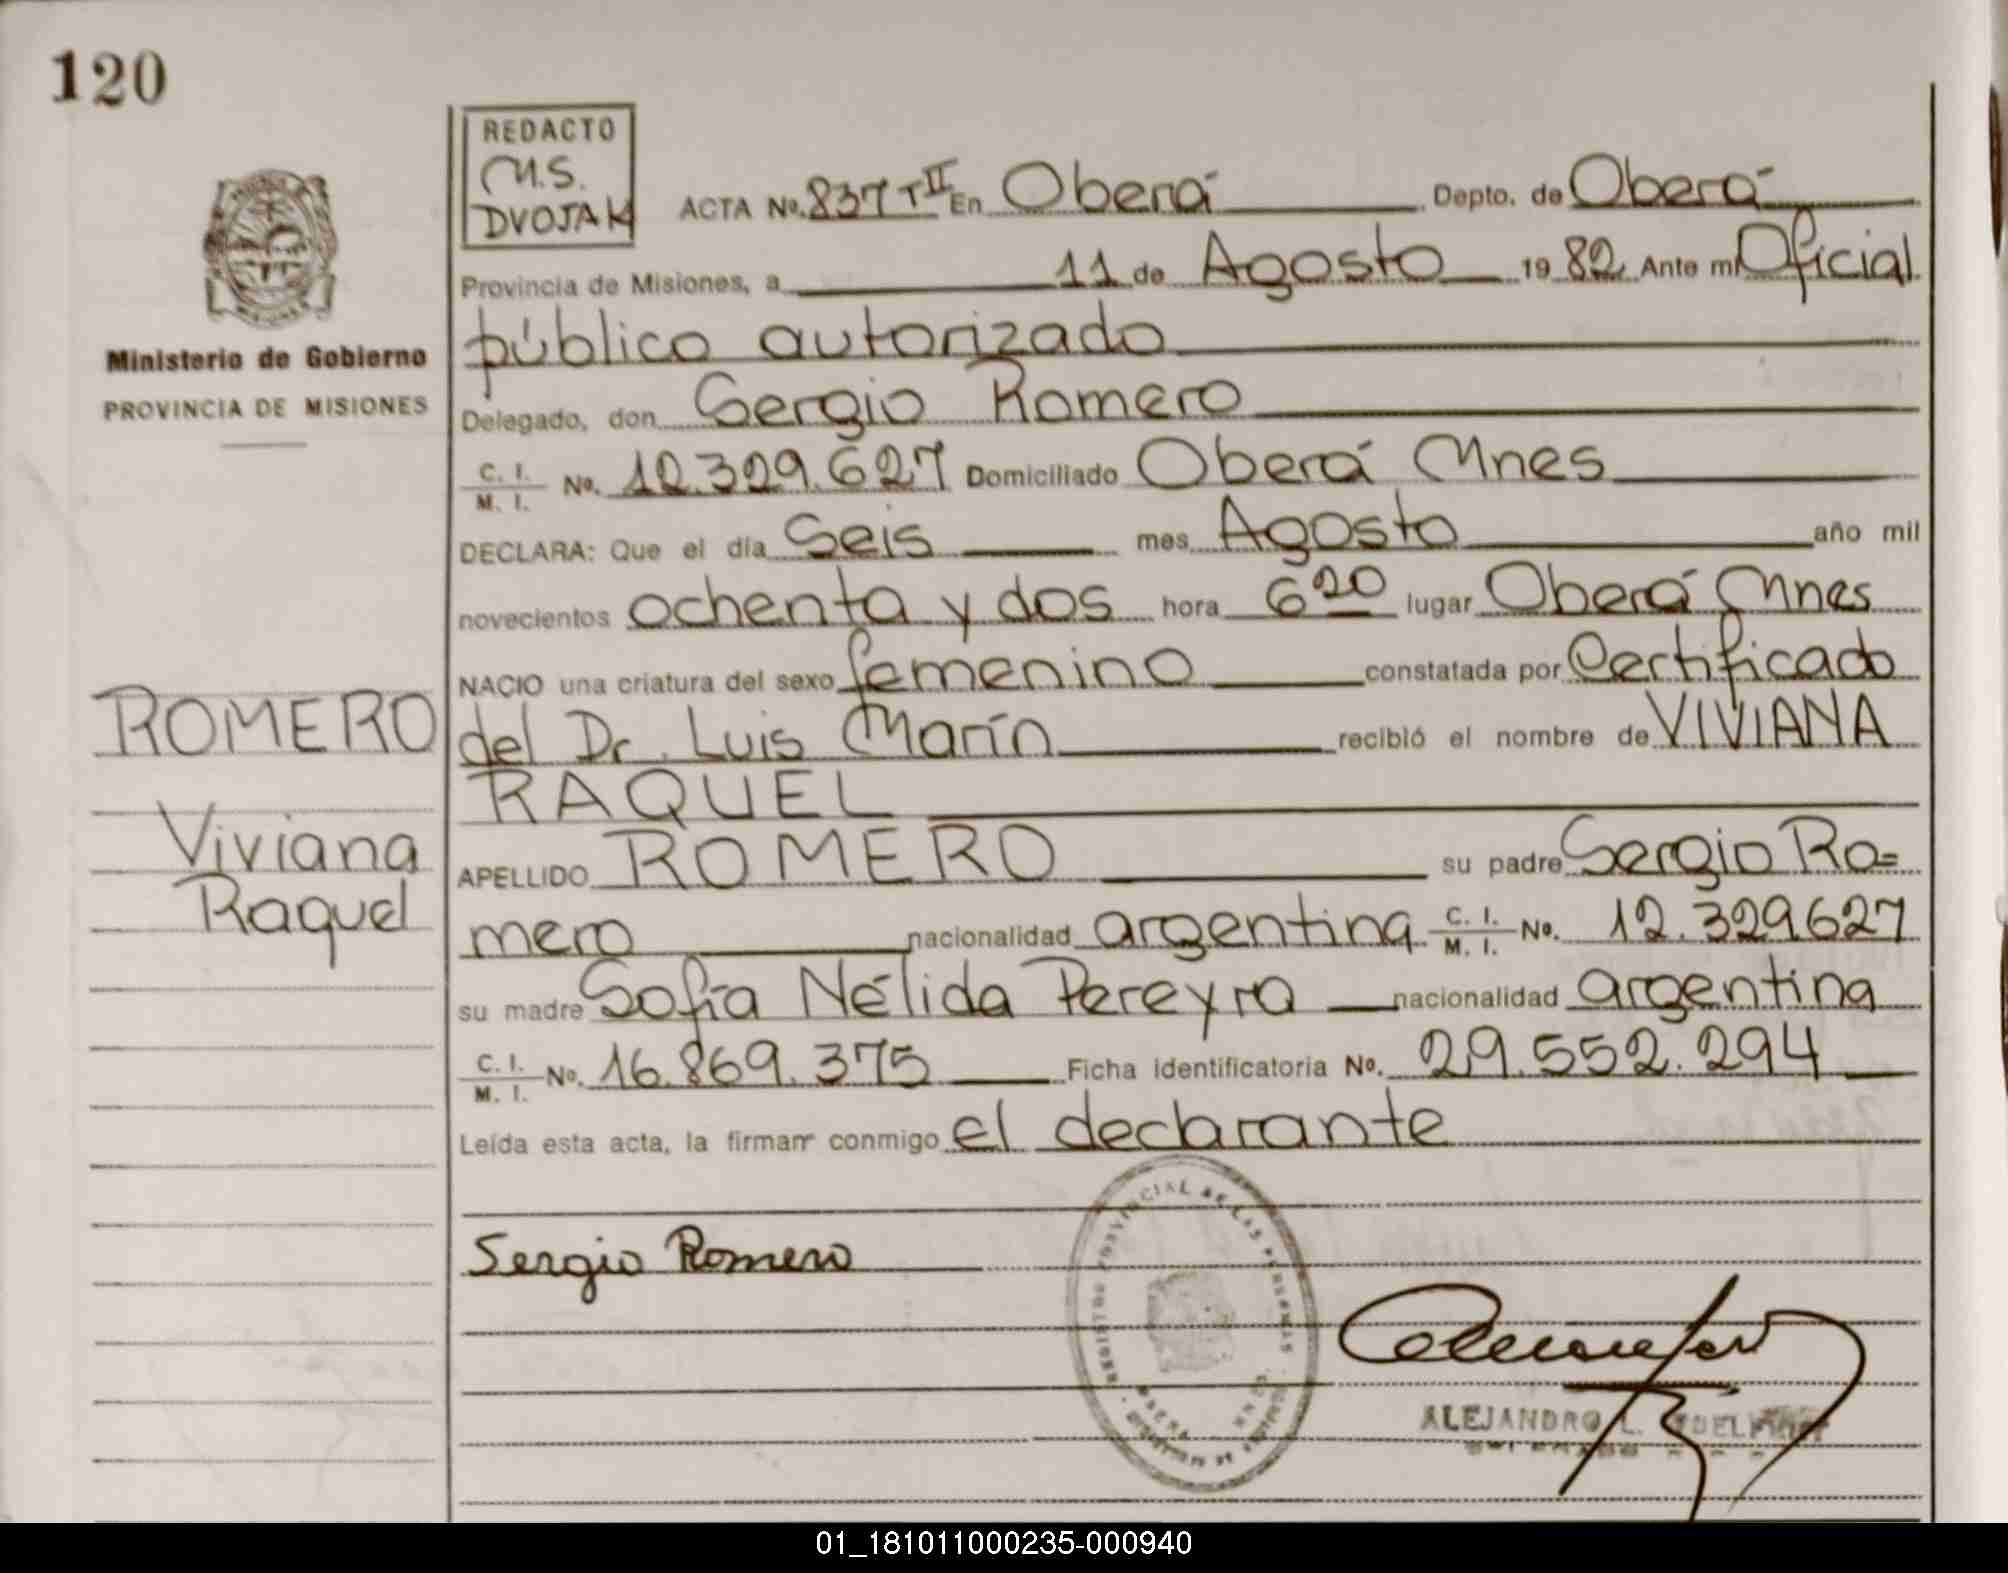 120
REDACTO
M.S.
DVOJAK
ACTA No. 837 T II En Oberá Depto. de Oberá
Provincia de Misiones, a 11 de Agosto 1982 Ante mi Oficial
público autorizado
Delegado, don Sergio Romero
C. I. / M. I. No. 12.329.627 Domiciliado Oberá Mnes
DECLARA: Que el día Seis mes Agosto año mil
novecientos ochenta y dos hora 6 20 lugar Oberá Mnes
NACIO una criatura del sexo femenino constatada por Certificado
del Dr. Luis Marín recibió el nombre de VIVIANA
RAQUEL
APELLIDO ROMERO su padre Sergio Ro=
mero nacionalidad argentina C. I. / M. I. No. 12.329627
su madre Sofía Nélida Pereyra nacionalidad argentina
C. I. / M. I. No. 16.869.375 Ficha identificatoria No. 29.552.294
Leída esta acta, la firman conmigo el declarante
Sergio Romero
Ministerio de Gobierno
PROVINCIA DE MISIONES
ROMERO
Viviana
Raquel
REGISTRO PROVINCIAL DE LAS PERSONAS
ALEJANDRO L.
01_181011000235-000940